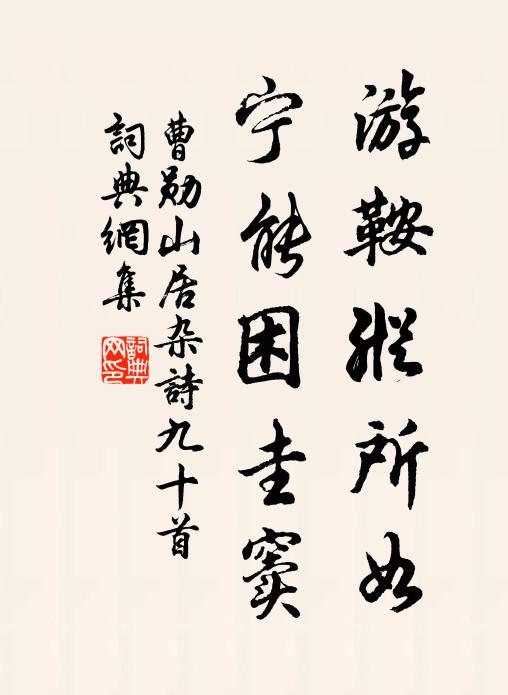 游鞍縱所如
宁能困圭竇
曹勋山居杂詩九十首
詞典網集
詞典網印